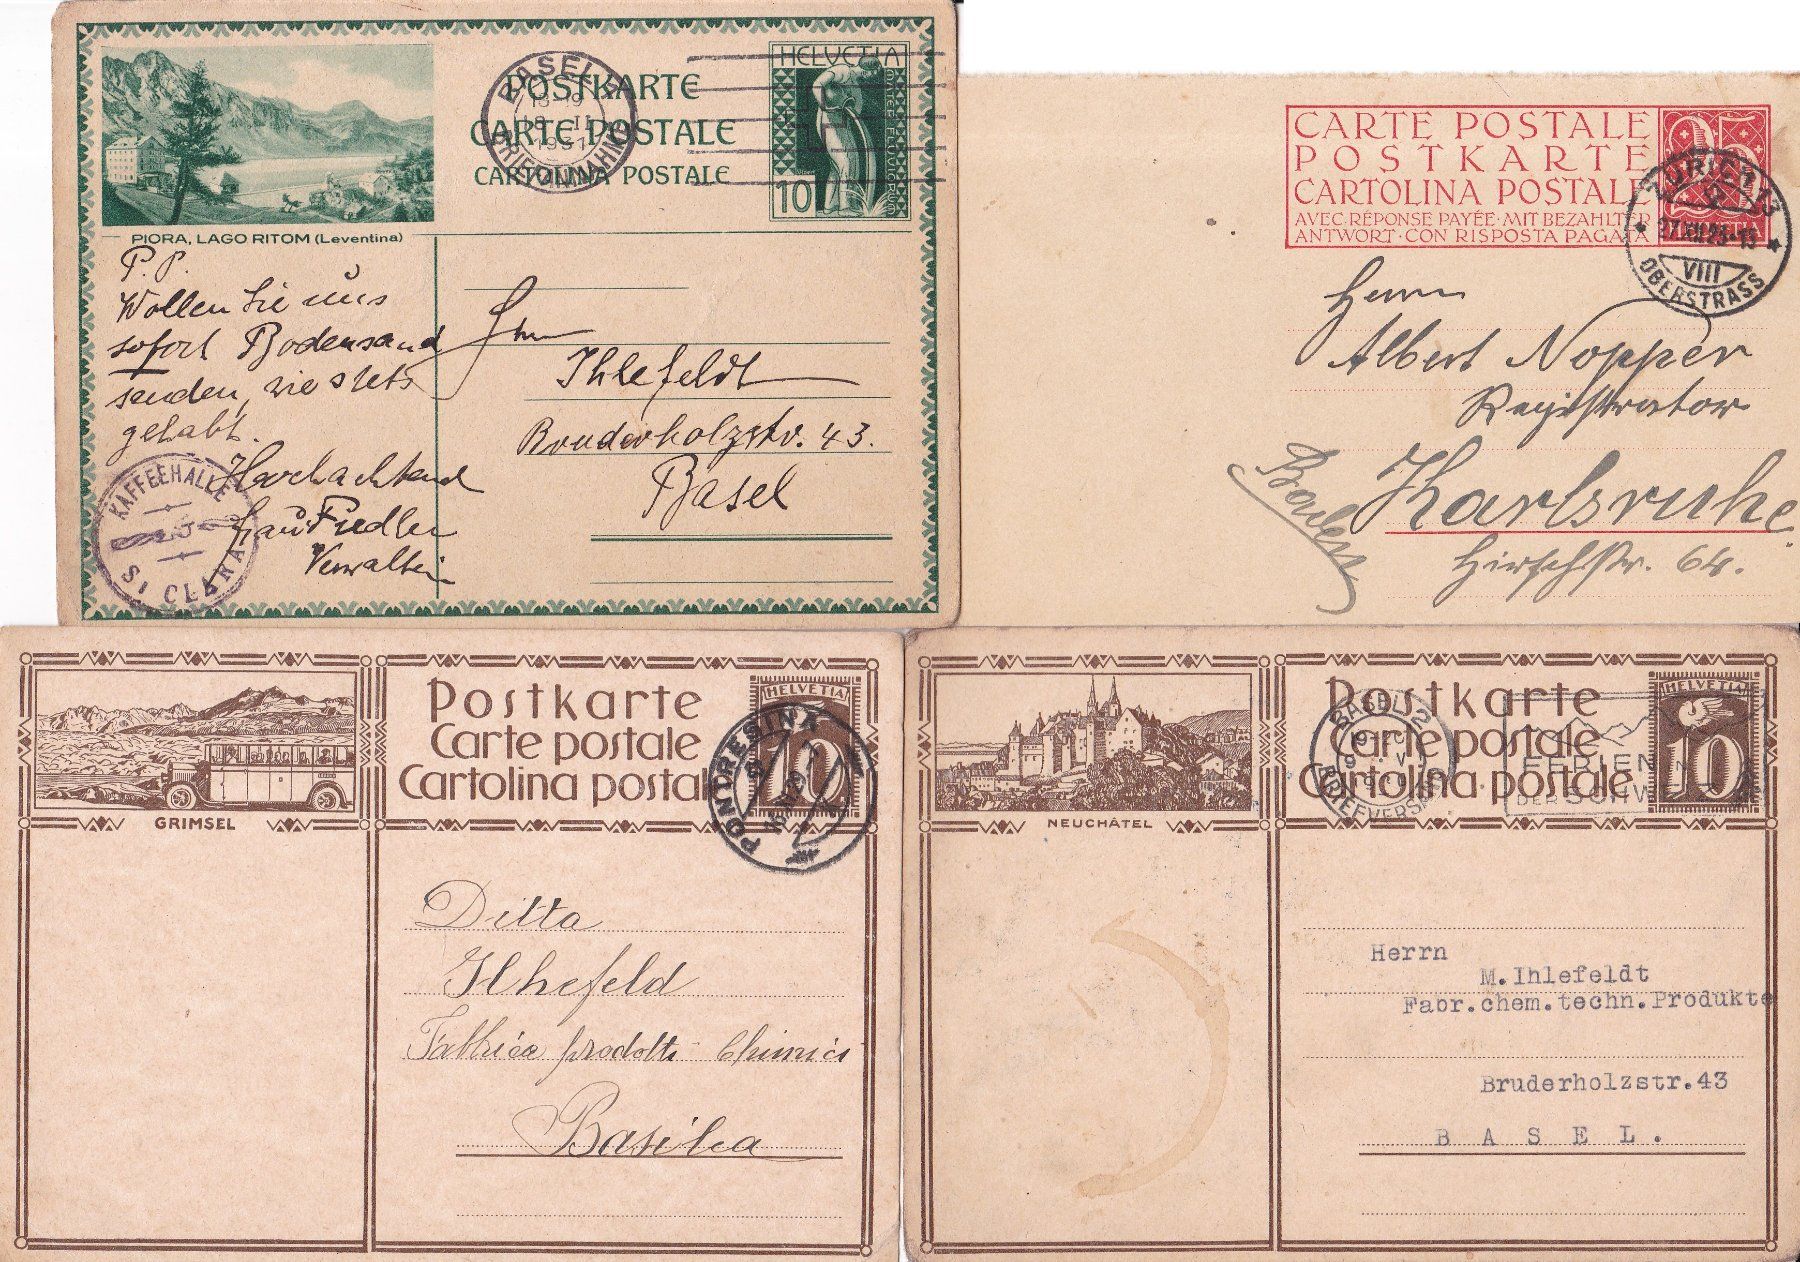 HELVETIA
POSTKARTE
CARTE POSTALE
CARTOLINA POSTALE
10
BASEL
13-19
1931
BRIEFANNAHME
PIORA, LAGO RITOM (Leventina)
P.P.
Wollen Sie uns
sofort Bodensand
senden, wie stets
gehabt.
Hochachtend
Frau Fiedler
KAFFEEHALLE
St CLARA
Ihlefeldt
Bruderholzstr. 43.
Basel
CARTE POSTALE
POSTKARTE
CARTOLINA POSTALE
AVEC·RÉPONSE PAYÉE·MIT BEZAHLTER
ANTWORT·CON RISPOSTA PAGATA
25
ZÜRICH 13
27.XII.23-15
VIII
OBERSTRASS
Herrn
Albert Nopper
Registrator
Karlsruhe
Baden
Hirschstr. 64.
GRIMSEL
Postkarte
Carte postale
Cartolina postale
HELVETIA
10
PONTRESINA
Ditta
Ilhefeld
Fabbrica prodotti Chimici
Basilea
NEUCHÂTEL
Postkarte
Carte postale
Cartolina postale
HELVETIA
10
BASEL 2
BRIEFVERSAND
FERIEN IN
DER SCHWEIZ
Herrn
M.Ihlefeldt
Fabr.chem.techn.Produkte
Bruderholzstr.43
B A S E L .